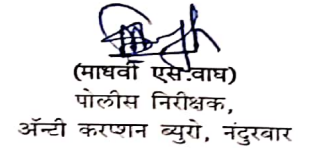 (माधवी एस.वाघ)
पोलीस निरीक्षक,
ॲन्टी करप्शन ब्युरो, नंदुरबार